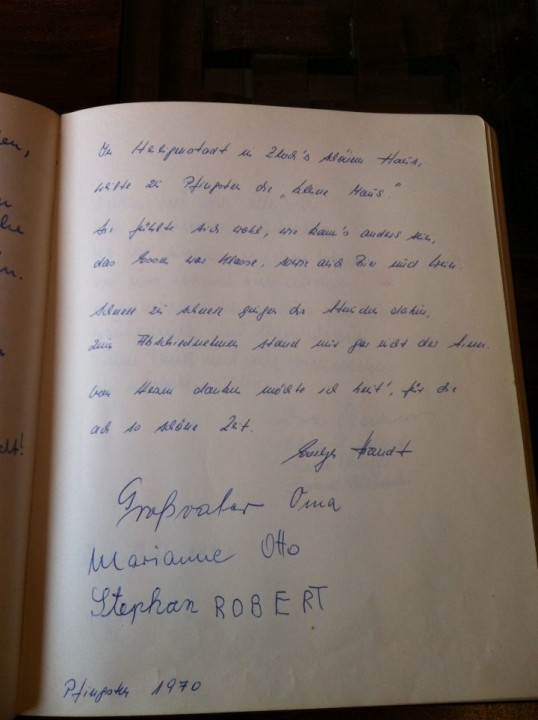 en,
In Heiligenstadt in Zloch's schönem Haus,
weilte zu Pfingsten die „kleine Maus".
Sie fühlte sich wohl, wie kann's anders sein,
das Essen war Klasse, sowie auch Bier und Wein
Schnell zu schnell gingen die Stunden dahin,
zum Abschiednehmen stand mir gar nicht der Sinn.
Von Herzen danken möchte ich heut', für die
ach so schöne Zeit.
Großvater Oma
Marianne Otto
Stephan ROBERT
Pfingsten 1970